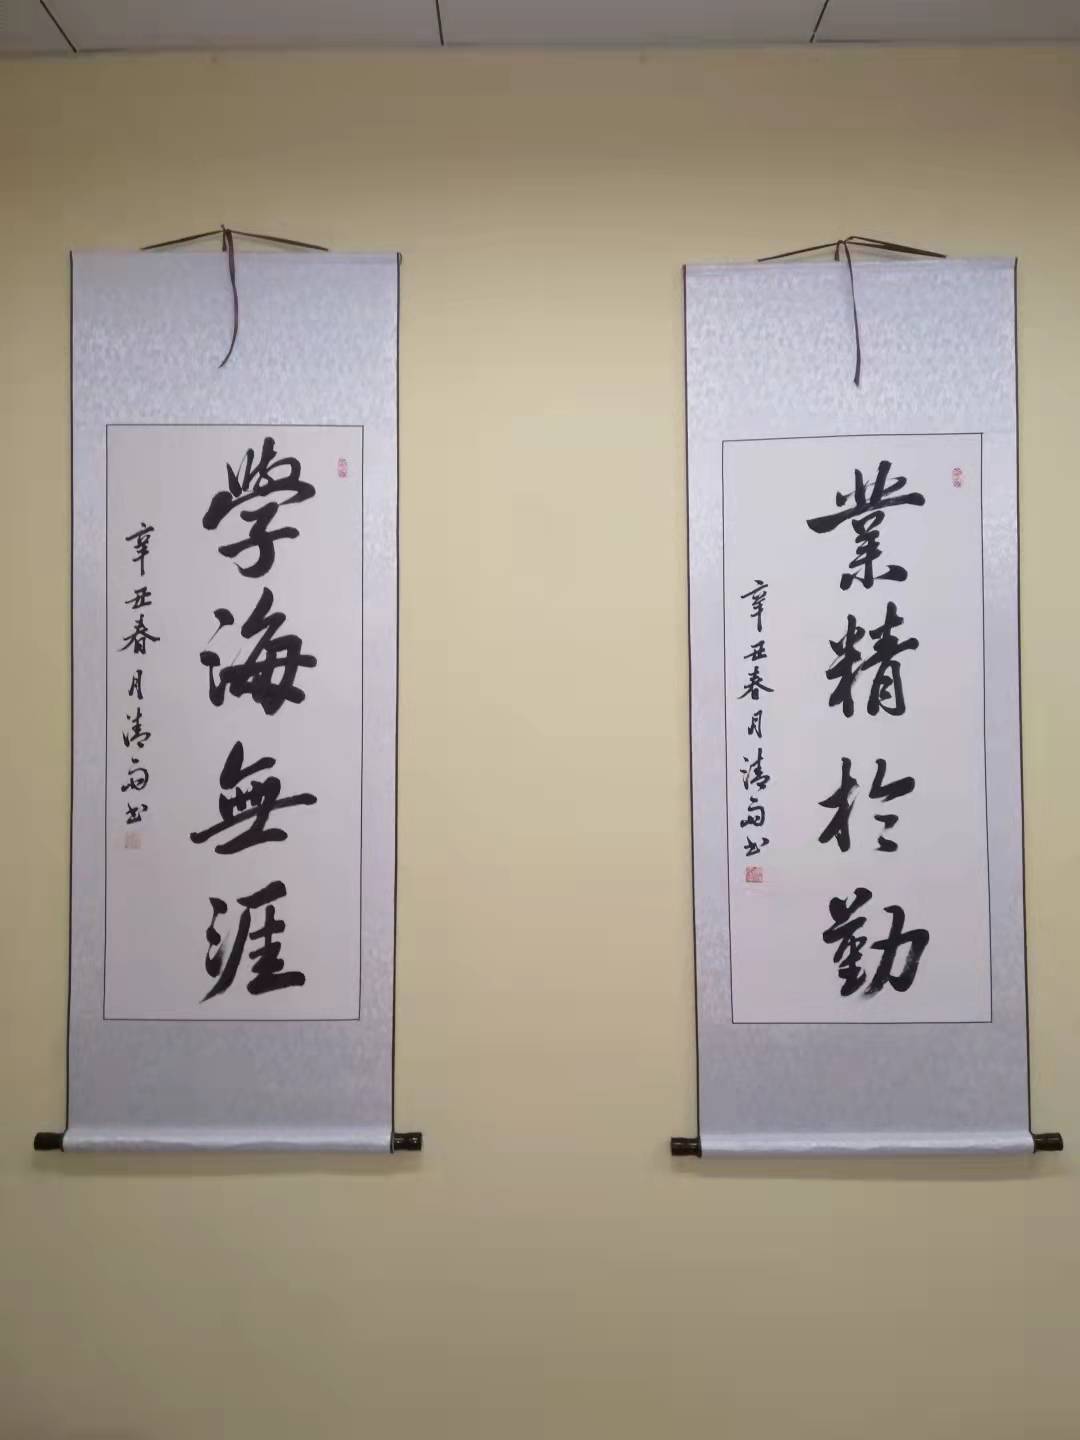 業精於勤
辛丑春月清雨书
學海無涯
辛丑春月清雨书